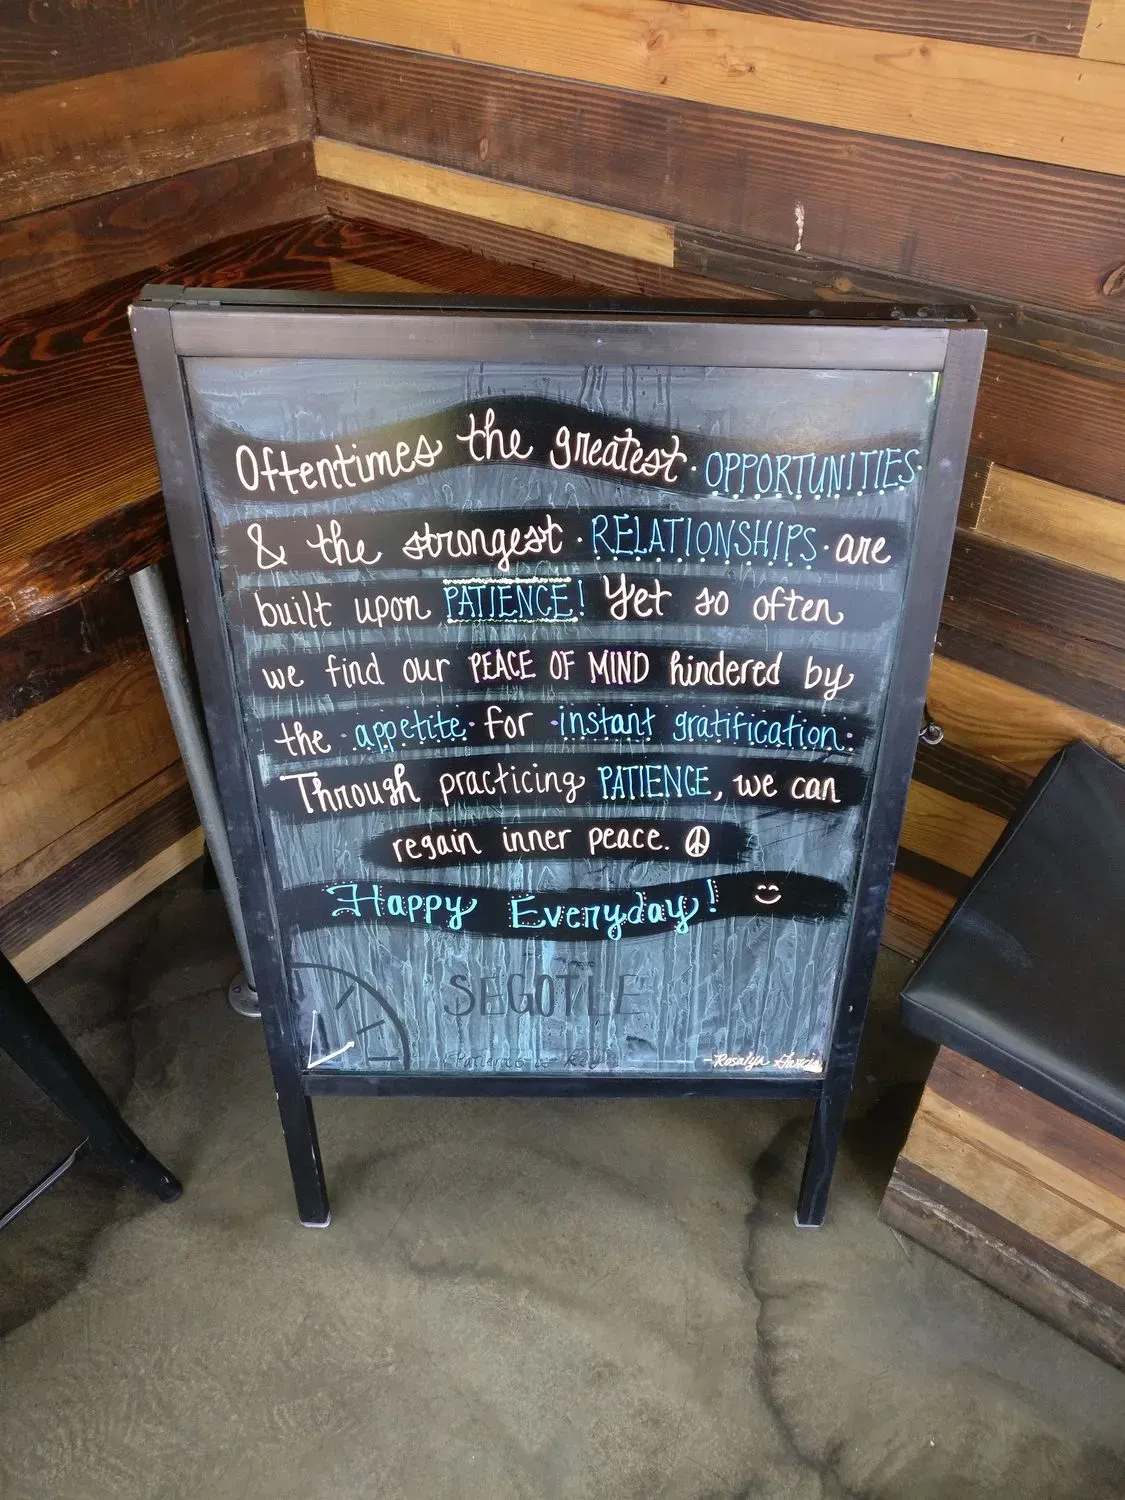 Oftentimes the greatest · OPPORTUNITIES ·
& the strongest · RELATIONSHIPS · are
built upon PATIENCE! Yet so often
we find our PEACE OF MIND hindered by
the · appetite · for · instant gratification.
Through practicing PATIENCE, we can
regain inner peace. ☮
Happy Everyday!
SEGOTLE
Patience Key
-Rosalyn Garcia